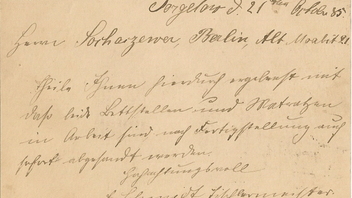 Torgelow d. 21ten Octbr 85.
Herrn Sochaczewer, Berlin, Alt Moabit 21
theile Ihnen hierdurch ergebenst mit
daß beide Bettstellen und Matratzen
in Arbeit sind nach Fertigstellung auch
sofort abgesandt werden.
Hochachtungsvoll
Schmidt Tischlermeister